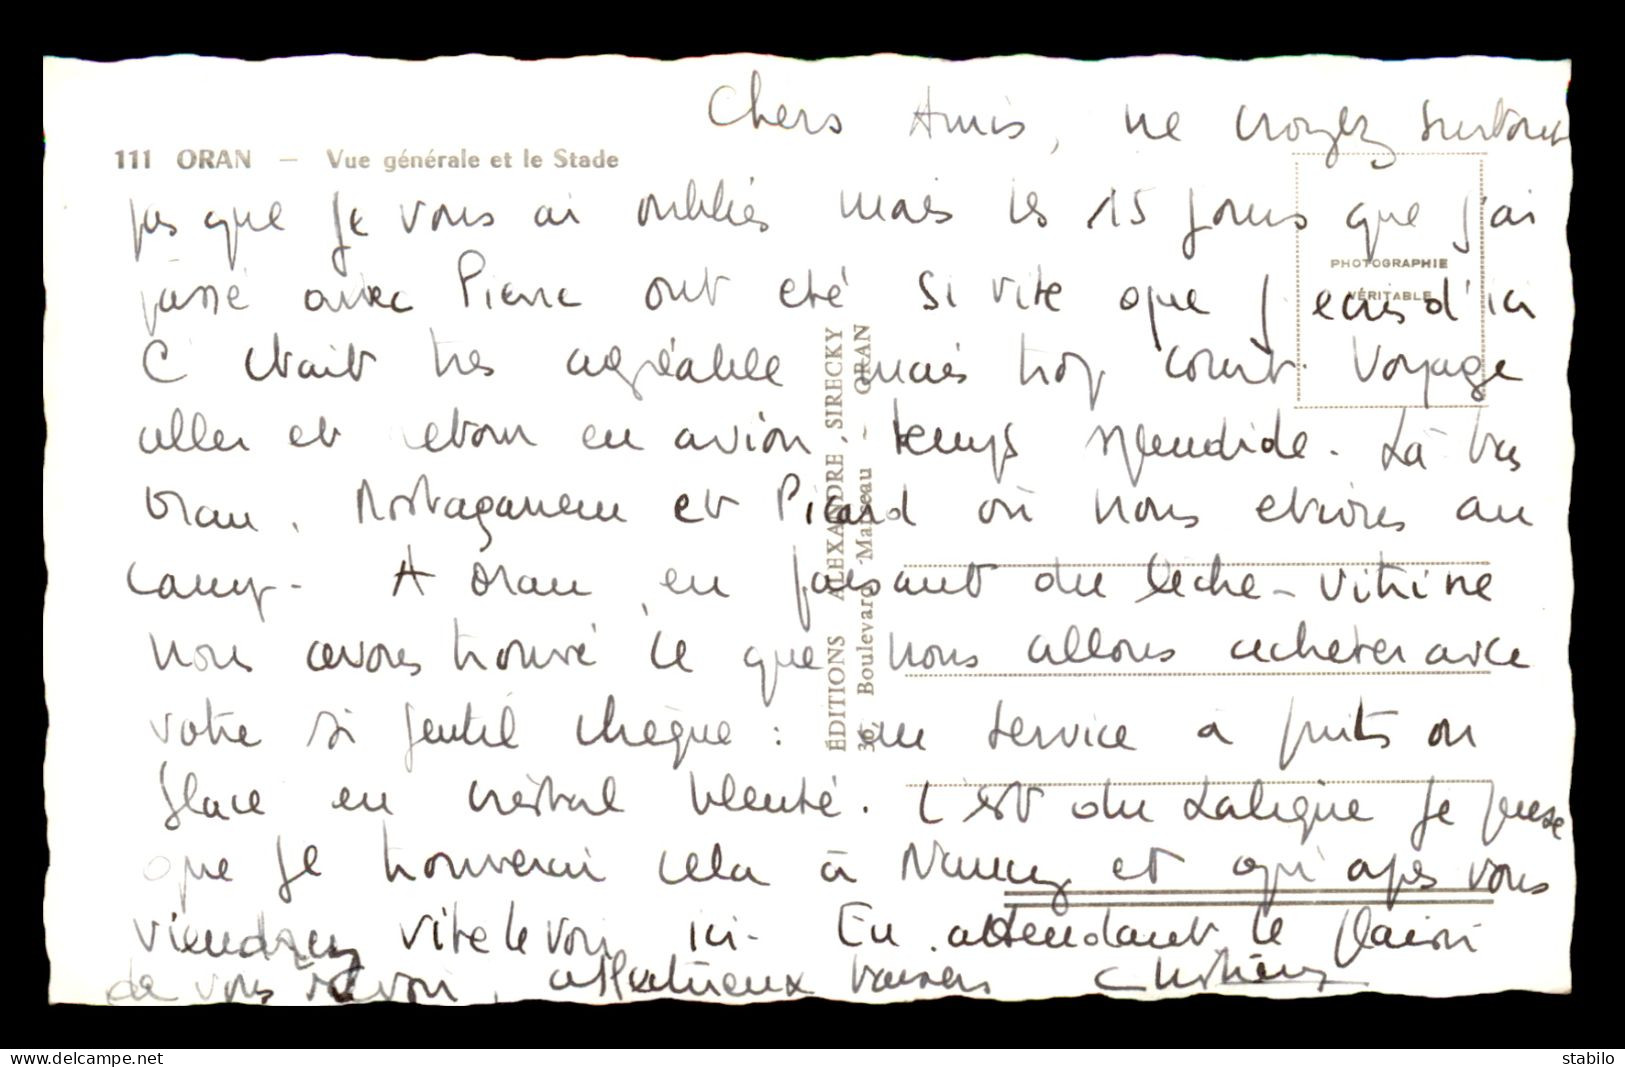 Chers Amis, ne croyez surtout
111 ORAN — Vue générale et le Stade
pas que je vous ai oubliés mais les 15 jours que j'ai
PHOTOGRAPHIE
VÉRITABLE
passé avec Pierre ont été si vite que j'ecris d'ici
C'etait tres agréable mais trop court. Voyage
aller et retour en avion temps splendide. Là bas
Oran, Mostaganem et Picard où nous etions au
camp. A Oran, en faisant du leche-vitrine
nous avons trouvé ce que nous allons acheter avec
votre si gentil chèque : un service à fruits ou
glace en cristal bleuté. C'est du Lalique je pense
que je trouverai cela à Nancy et qu'apes vous
viendrez vite le voir ici. En attendant le plaisir
de vous revoir, affectueux baisers Christiane
ÉDITIONS ALEXANDRE, SIRECKY
30, Boulevard Marceau - ORAN
delcampe.net
stabilo